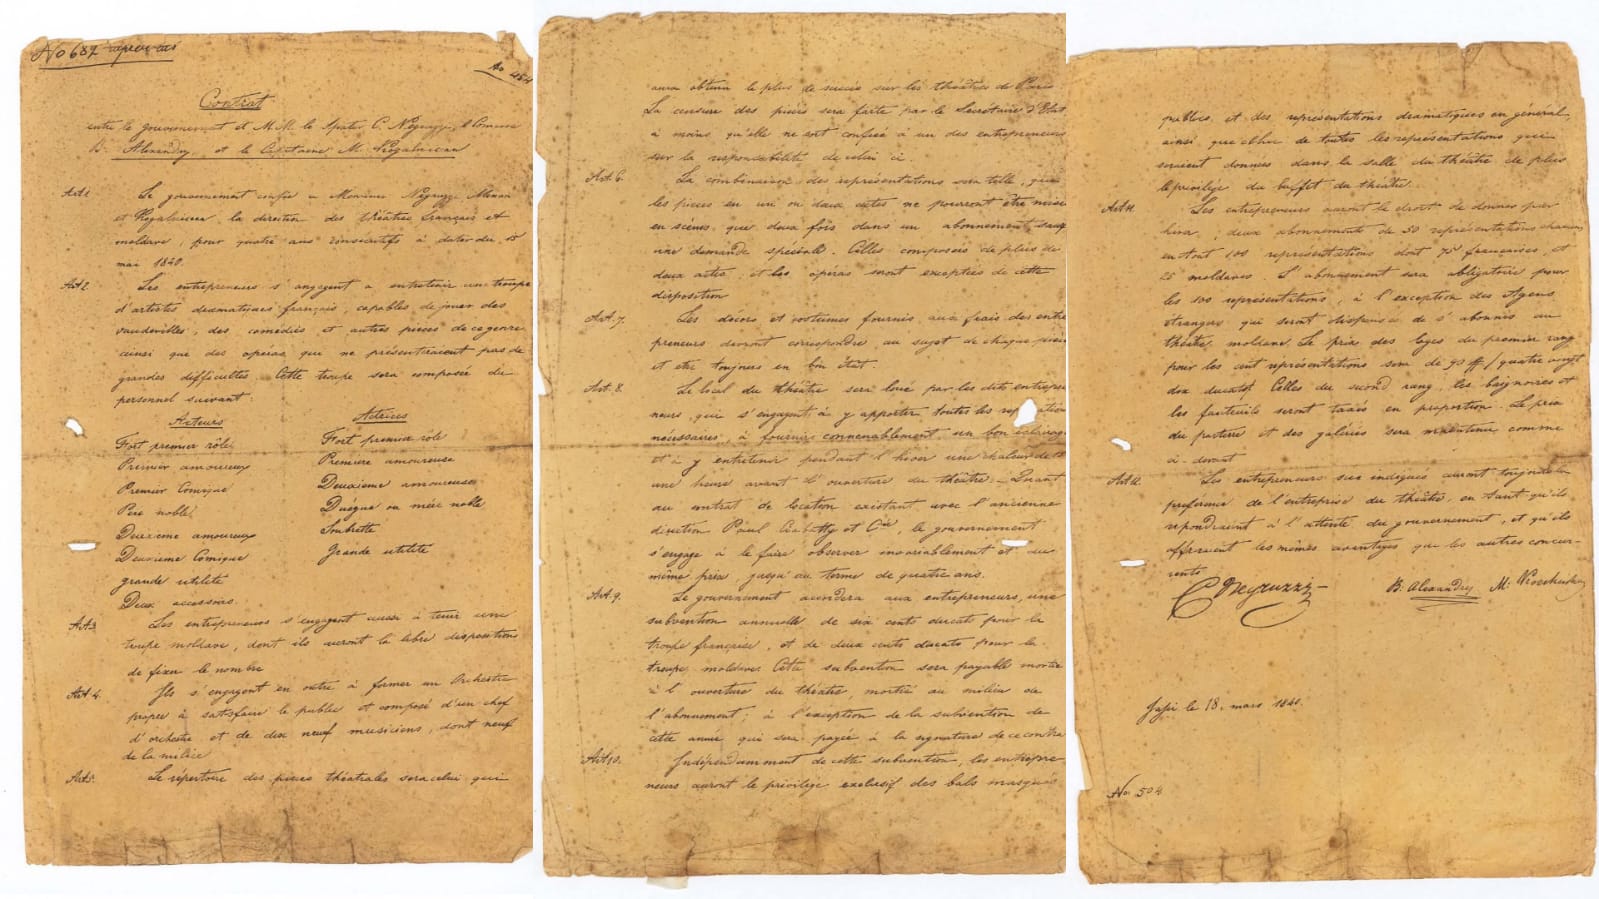 No 687
No 454
Contrat
entre le gouvernement et M.M. le Spatar C. Negruzzi, le Comisse
B. Alexandry, et le Capitaine M. Kogalnicean
Art 1. Le gouvernement confie a Messieurs Negruzzi Alexan
et Kogalnicean la direction des théatres français et
moldave, pour quatre ans consécutifs à dater du 15
mai 1840.
Art 2. Les entrepreneurs s'engagent a entretenir une troupe
d'artistes dramatiques français, capables de jouer des
vaudevilles, des comédies et autres pieces de ce genre
ainsi que des opéras que ne présenteraient pas de
grandes difficultés. Cette troupe sera composée du
personnel suivant:
Acteurs
Fort premier rôle
Premier amoureux
Premier Comique
Père noble
Deuxième amoureux
Deuxième Comique
grande utilité
Deux accessoirs.
Actrices
Fort premier rôle
Première amoureuse
Deuxième amoureuse
Duègne ou mère noble
Soubrette
Grande utilité
Art 3. Les entrepreneurs s'engagent aussi à tenir une
troupe moldave, dont ils auront la libre dispositions
de fixer le nombre
Art 4. Ils s'engagent en outre à former un Orchestre
propre à satisfaire le public et composé d'un chef
d'orchestre et de dix neuf musiciens, dont neuf
de la milice
Art 5. Le répertoire des pièces théâtrales sera celui qui
aura obtenu le plus de succès sur les théâtres de Paris
La censure des pièces sera faite par le Secrétaire d'Etat
à moins qu'elle ne soit confiée à un des entrepreneurs
sur la responsabilité de celui ci.
Art 6. La combinaison des représentations sera telle, que
les pieces en un ou deux actes ne pourront être mises
en scène, que deux fois dans un abonnement sauf
une demande spéciale. Celles composées de plus de
deux actes, et les opéras seront exceptées de cette
disposition
Art. 7. Les décors et costumes fournis aux frais des entre
preneurs devront correspondre au sujet de chaque pièce
et être toujours en bon état.
Art. 8. Le local du théâtre sera loué par les dits entrepre
neurs, qui s'engagent à y apporter toutes les
nécessaires, à fournir convenablement un bon éclairage
et à y entretenir pendant l'hiver une chaleur de
une heure avant l'ouverture du théâtre. Quant
au contrat de location existant avec l'ancienne
direction Paul et Cie, le gouvernement
s'engage à le faire observer invariablement et au
même prix, jusqu'au terme de quatre ans.
Art. 9. Le gouvernement accordera aux entrepreneurs, une
subvention annuelle de six cents ducats pour la
troupe française, et de deux cents ducats pour la
troupe moldave. Cette subvention sera payable moitié
à l'ouverture du théâtre, moitié au milieu de
l'abonnement; à l'exception de la subvention de
cette année qui sera payée à la signature de ce contra
Art 10. Indépendamment de cette subvention, les entrepre
neurs auront le privilège exclusif des bals masqués
publics et des représentations dramatiques en général,
ainsi que celui de toutes les représentations qui
seraient données dans la salle du théâtre de plus
le privilège du buffet du théâtre.
Art 11. Les entrepreneurs auront le droit de donner par
hiver, deux abonnements de 50 représentations chacun
en tout 100 représentations dont 75 françaises et
25 moldaves. L'abonnement sera obligatoire pour
les 100 représentations, à l'exception des Agens
étrangers qui seront dispensés de s'abonner au
théâtre moldave. Le prix des loges du premier rang
pour les cent représentations sera de 90 # / quatre vingt
dix ducats / Celles du second rang, les baignoires et
les fauteuils seront taxés en proportion. Le prix
du parterre et des galeries sera maintenu comme
ci-devant
Art 12. Les entrepreneurs sus indiqués auront toujours la
préférence de l'entreprise du théâtre, en tant qu'ils
repondraient à l'attente du gouvernement, et qu'ils
offriraient les mêmes avantages que les autres concur-
rents
C Negruzzi B. Alexandry M:
Jassi le 18. mars 1840.
No. 504